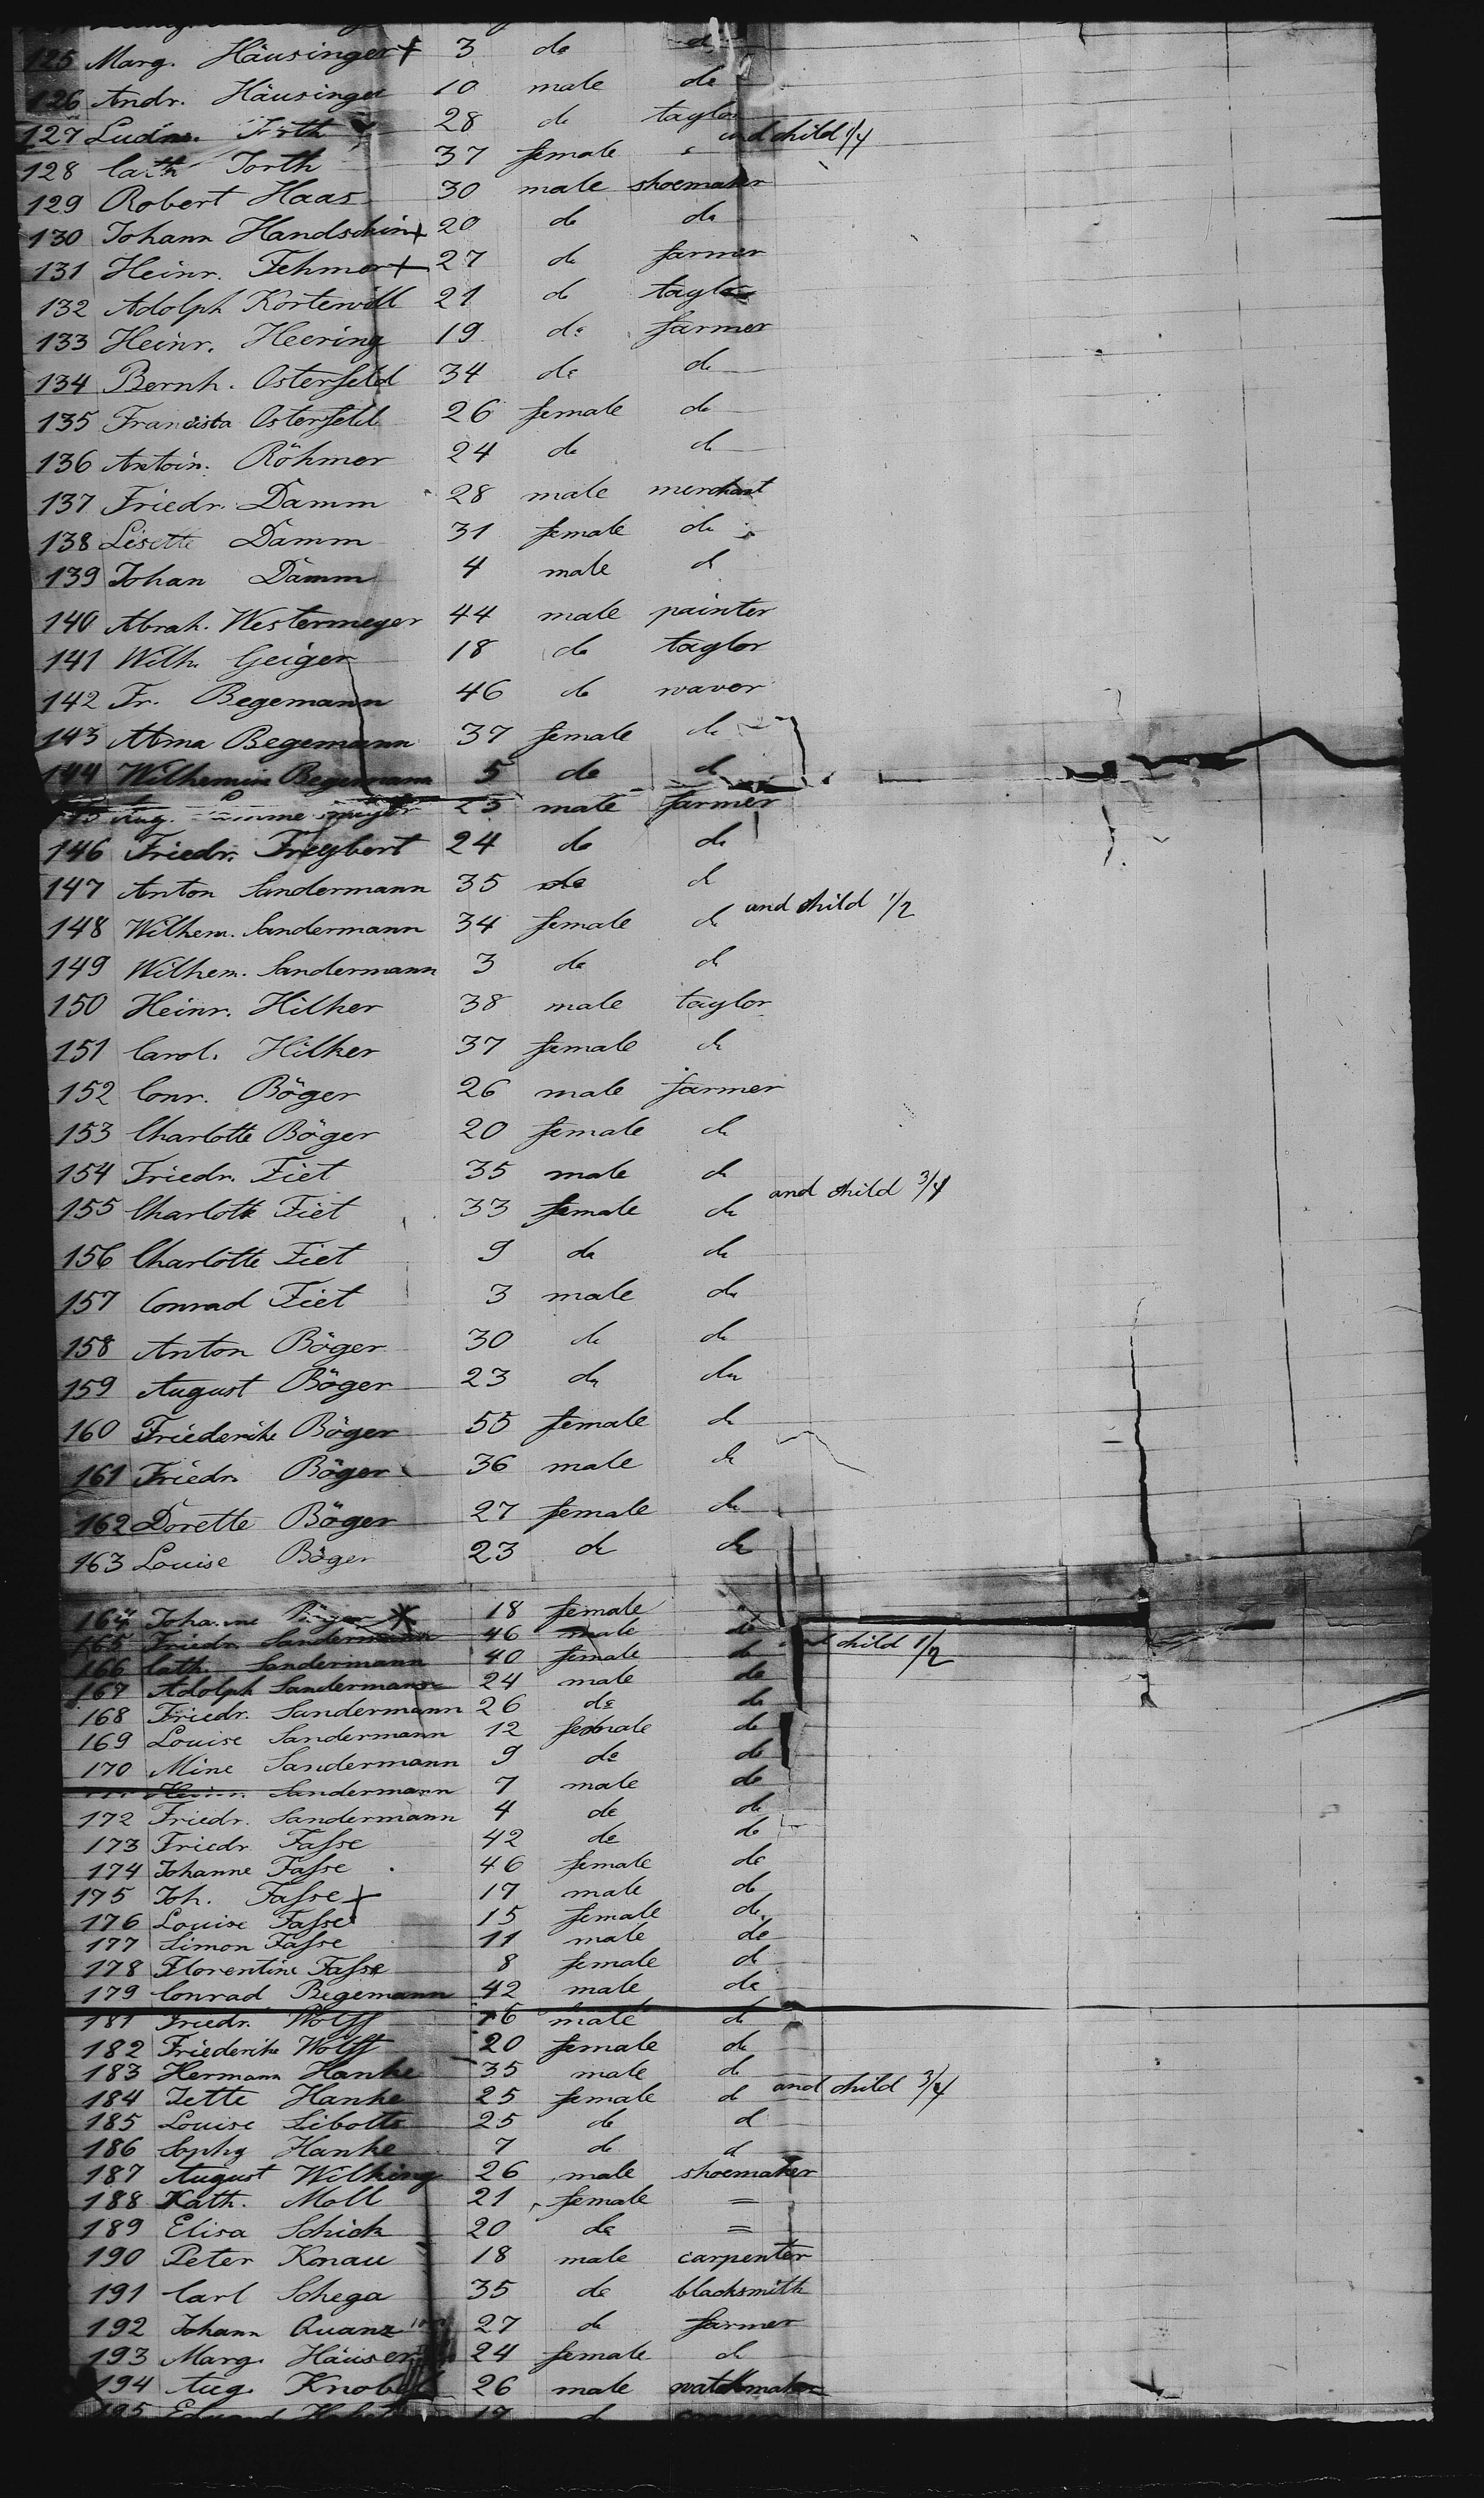 125 Marg. Häusinger + 3 do do
126 Andr. Häusinger 10 male do
127 Ludw. 28 do taylor
128 Cath Forth 37 female and child 1/4
129 Robert Haas 30 male shoemaker
130 Johann Handschin + 20 do do
131 Heinr. Fehmer + 27 do farmer
132 Adolph Kortewill 21 do taylor
133 Heinr. Heering 19 do farmer
134 Bernh. Osterfeld 34 do do
135 Francisca Osterfeld 26 female do
136 Antoin. Röhmer 24 do do
137 Friedr. Damm 28 male merchant
138 Lisette Damm 31 female do
139 Johan Damm 4 male do
140 Abrah. Westermeyer 44 male painter
141 Wilh. Geiger 18 do taylor
142 Fr. Begemann 46 do waver
143 Alma Begemann 37 female do
144 Wilhemine Begemann 5 do do
145 Aug. 25 male farmer
146 Friedr. Freybert 24 do do
147 Anton Sandermann 35 do do
148 Wilhem. Sandermann 34 female do and child 1/2
149 Wilhem. Sandermann 3 do do
150 Heinr. Hilker 38 male taylor
151 Carol. Hilker 37 female do
152 Conr. Böger 26 male farmer
153 Charlotte Böger 20 female do
154 Friedr. Fiet 35 male do
155 Charlotte Fiet 33 female do and child 3/4
156 Charlotte Fiet 9 do do
157 Conrad Fiet 3 male do
158 Anton Böger 30 do do
159 August Böger 23 do do
160 Friederike Böger 55 female do
161 Friedr. Böger 36 male do
162 Dorette Böger 27 female do
163 Louise Böger 23 do do
164 Johanne Böger 18 female
165 Friedr. Sandermann 46 male do
166 Cath. Sandermann 40 female do and child 1/2
167 Adolph Sandermann 24 male do
168 Friedr. Sandermann 26 do do
169 Louise Sandermann 12 female do
170 Mine Sandermann 9 do do
Heinr. Sandermann 7 male do
172 Friedr. Sandermann 4 do do
173 Friedr. Fasse 42 do do
174 Johanne Fasse 46 female do
175 Joh. Fasse + 17 male do
176 Louise Fasse 15 female do
177 Simon Fasse 11 male do
178 Florentine Fasse 8 female do
179 Conrad Begemann 42 male do
181 Friedr. Wolff 16 male do
182 Friederike Wolff 20 female do
183 Hermann Hanke 35 male do
184 Jette Hanke 25 female do and child 3/4
185 Louise Libotte 25 do do
186 Sophy Hanke 7 do do
187 August Wilking 26 male shoemaker
188 Kath. Moll 21 female =
189 Elisa Schick 20 do =
190 Peter Konau 18 male carpenter
191 Carl Schega 35 do blacksmith
192 Johann Quanz 27 do farmer
193 Marg. Häuser 24 female do
194 Aug. Knobel 26 male watchmaker
195 Eduard 17 do